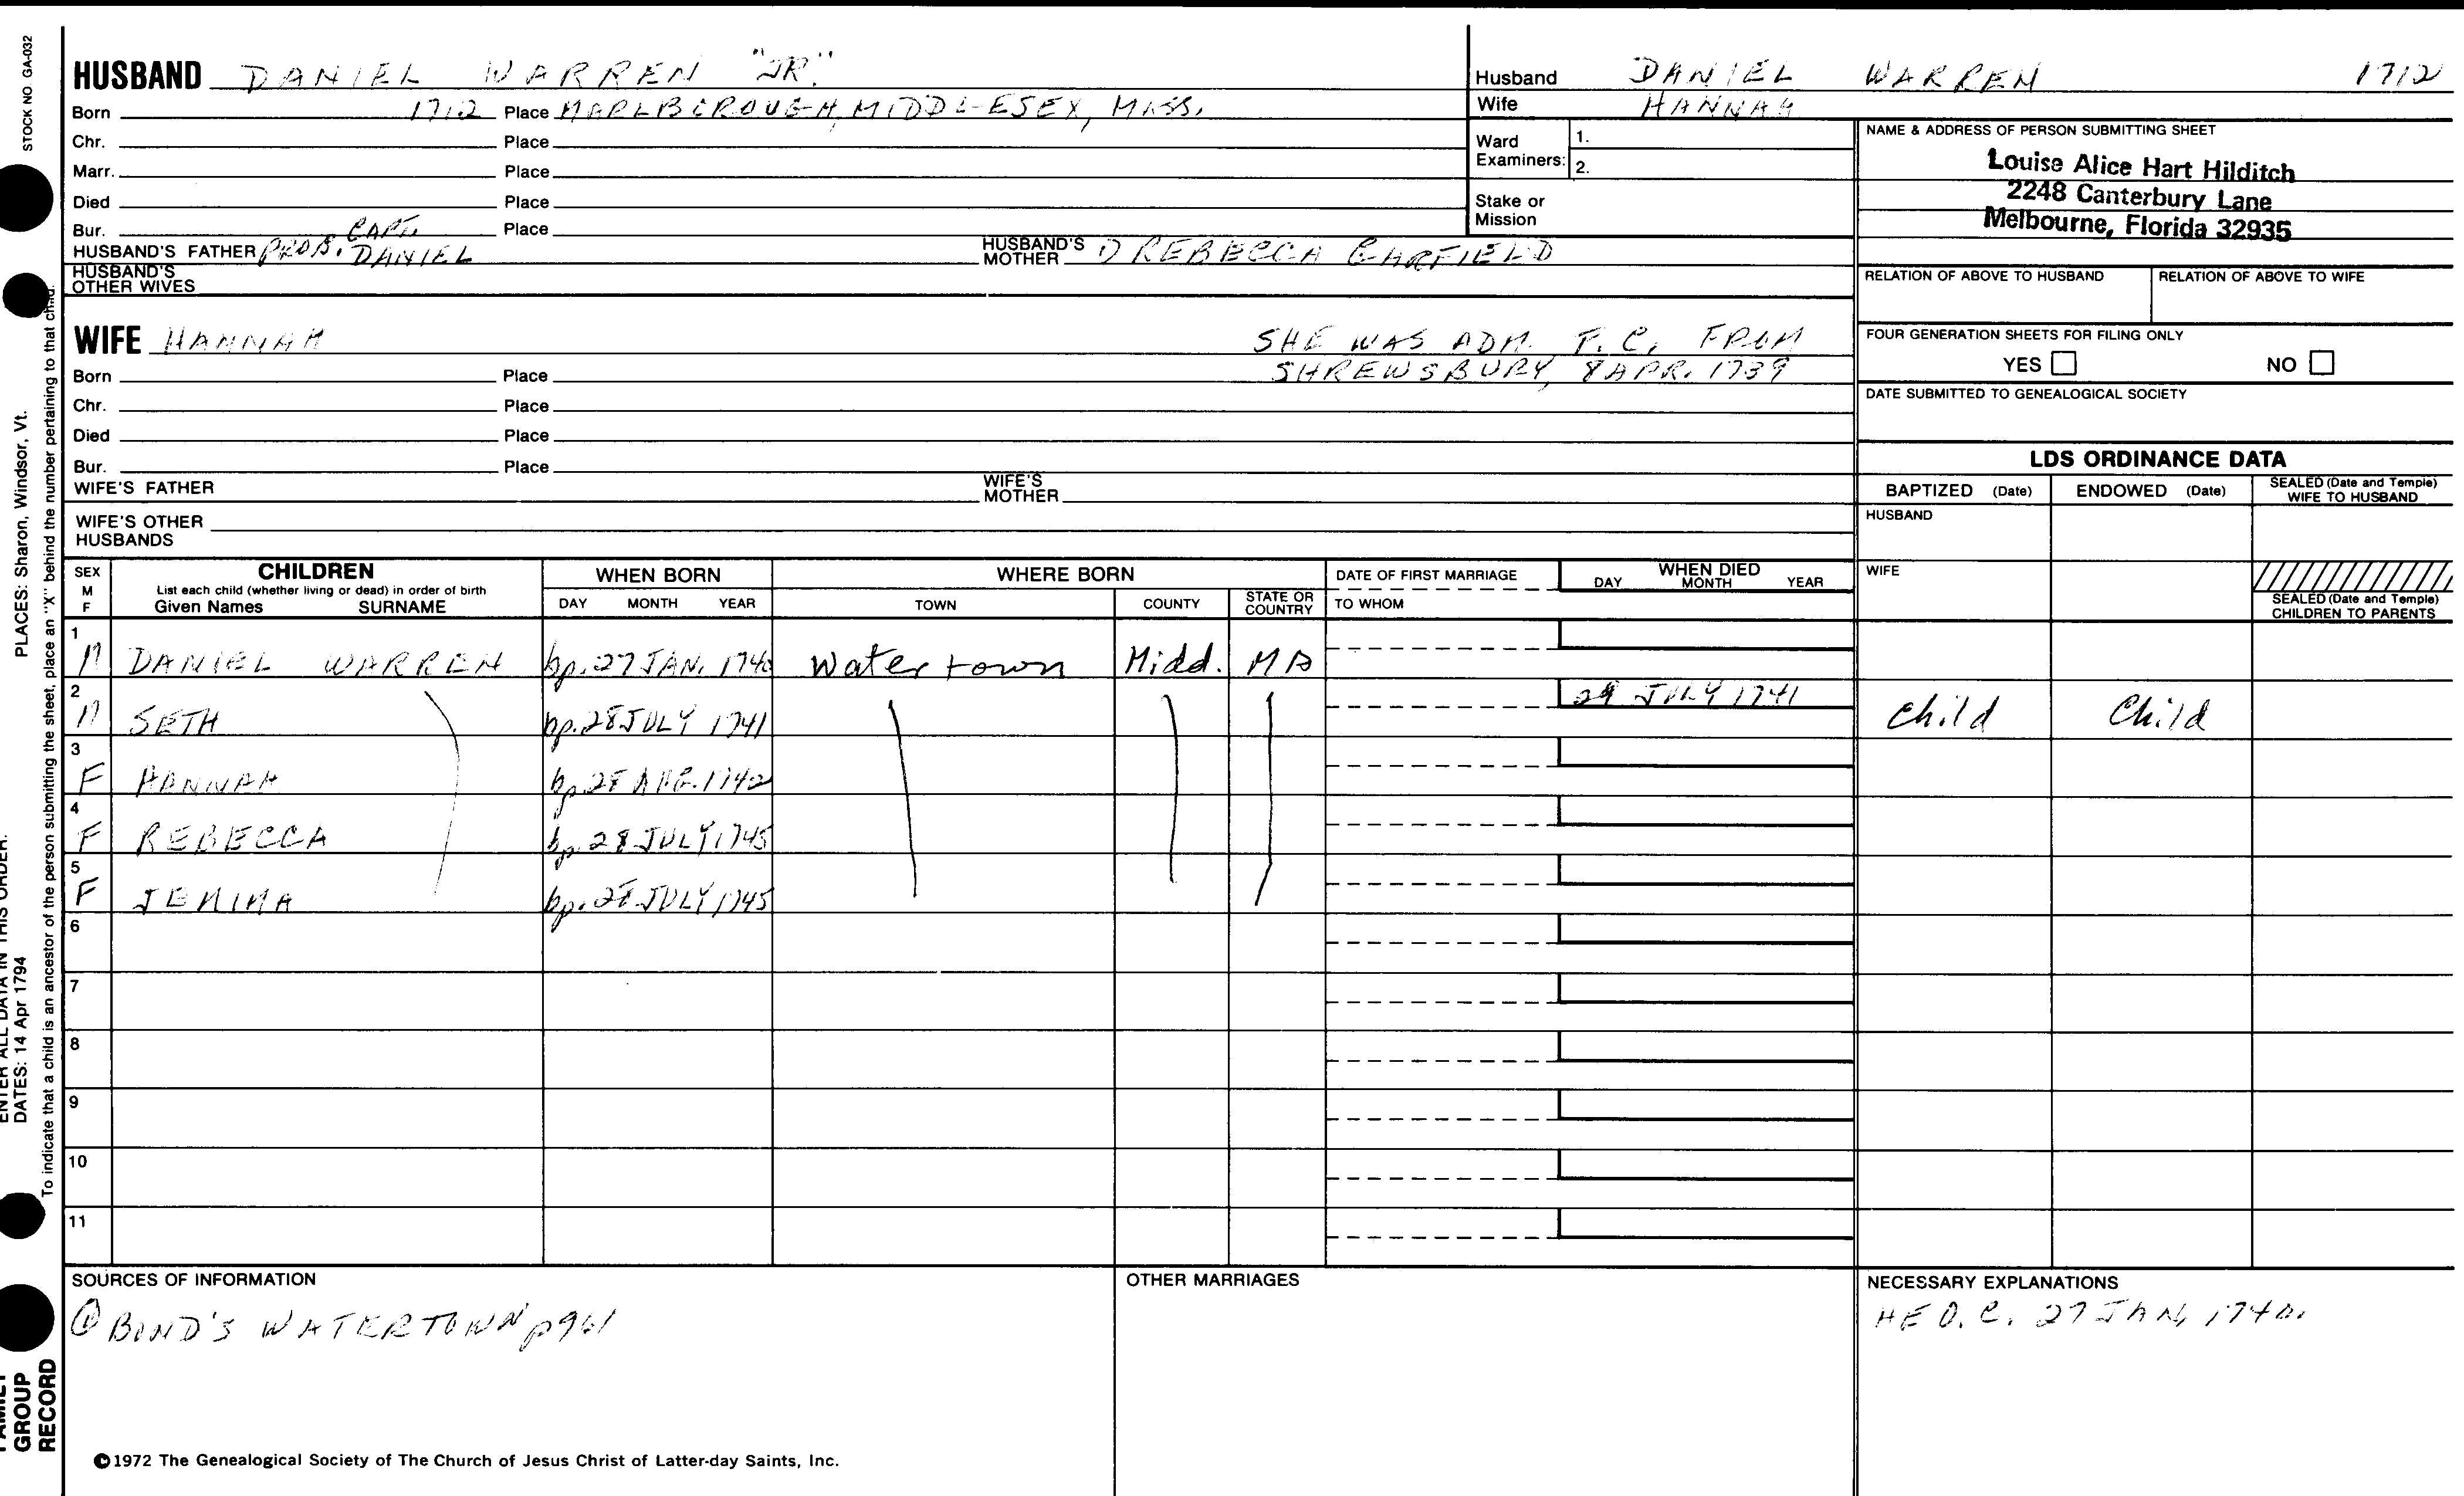 STOCK NO GA-032
HUSBAND DANIEL WARREN "JR."
Born 1712 Place MARLBOROUGH, MIDDLESEX, MASS.
Chr. Place
Marr. Place
Died Place
Bur. Place
HUSBAND'S FATHER PROB. CAPT. DANIEL HUSBAND'S MOTHER REBECCA GARFIELD
HUSBAND'S OTHER WIVES
Husband DANIEL WARREN 1712
Wife HANNAH
Ward Examiners: 1.
2.
Stake or Mission
NAME & ADDRESS OF PERSON SUBMITTING SHEET
Louise Alice Hart Hilditch
2248 Canterbury Lane
Melbourne, Florida 32935
RELATION OF ABOVE TO HUSBAND RELATION OF ABOVE TO WIFE
FOUR GENERATION SHEETS FOR FILING ONLY
YES NO
DATE SUBMITTED TO GENEALOGICAL SOCIETY
WIFE HANNAH SHE WAS ADM. F. C. FROM
SHREWSBURY, 8 APR. 1739
Born Place
Chr. Place
Died Place
Bur. Place
WIFE'S FATHER WIFE'S MOTHER
WIFE'S OTHER HUSBANDS
LDS ORDINANCE DATA
BAPTIZED (Date) ENDOWED (Date) SEALED (Date and Temple) WIFE TO HUSBAND
HUSBAND
WIFE
SEALED (Date and Temple) CHILDREN TO PARENTS
SEX M F
CHILDREN
List each child (whether living or dead) in order of birth
Given Names SURNAME
WHEN BORN
DAY MONTH YEAR
WHERE BORN
TOWN COUNTY STATE OR COUNTRY
DATE OF FIRST MARRIAGE
TO WHOM
WHEN DIED
DAY MONTH YEAR
1 M DANIEL WARREN bp. 27 JAN. 1740 Watertown Midd. MA
2 M SETH bp. 28 JULY 1741 29 JULY 1741 Child Child
3 F HANNAH bp. 28 AUG. 1742
4 F REBECCA bp. 28 JULY 1745
5 F JEMIMA bp. 28 JULY 1745
6
7
8
9
10
11
SOURCES OF INFORMATION
① BOND'S WATERTOWN p961
OTHER MARRIAGES
NECESSARY EXPLANATIONS
HE O. C. 27 JAN, 1740.
©1972 The Genealogical Society of The Church of Jesus Christ of Latter-day Saints, Inc.
PLACES: Sharon, Windsor, Vt.
To indicate that a child is an ancestor of the person submitting the sheet, place an "X" behind the number pertaining to that child.
ENTER ALL DATA IN THIS ORDER:
DATES: 14 Apr 1794
FAMILY GROUP RECORD